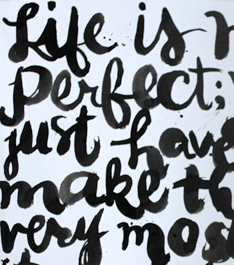 Life is n
perfect;
just have
make th
very mos